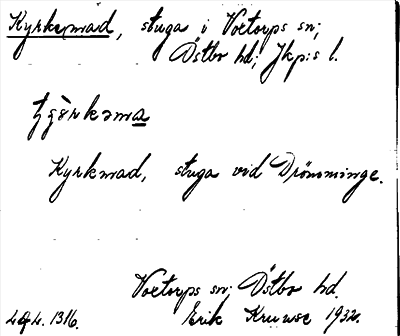 Kyrkemad, stuga i Voxtorps sn;
Östbo hd; Jkp:s l.
Kyrkmad, stuga vid Drömminge.
Voxtorps sn; Östbo hd.
Erik Kruuse 1932.